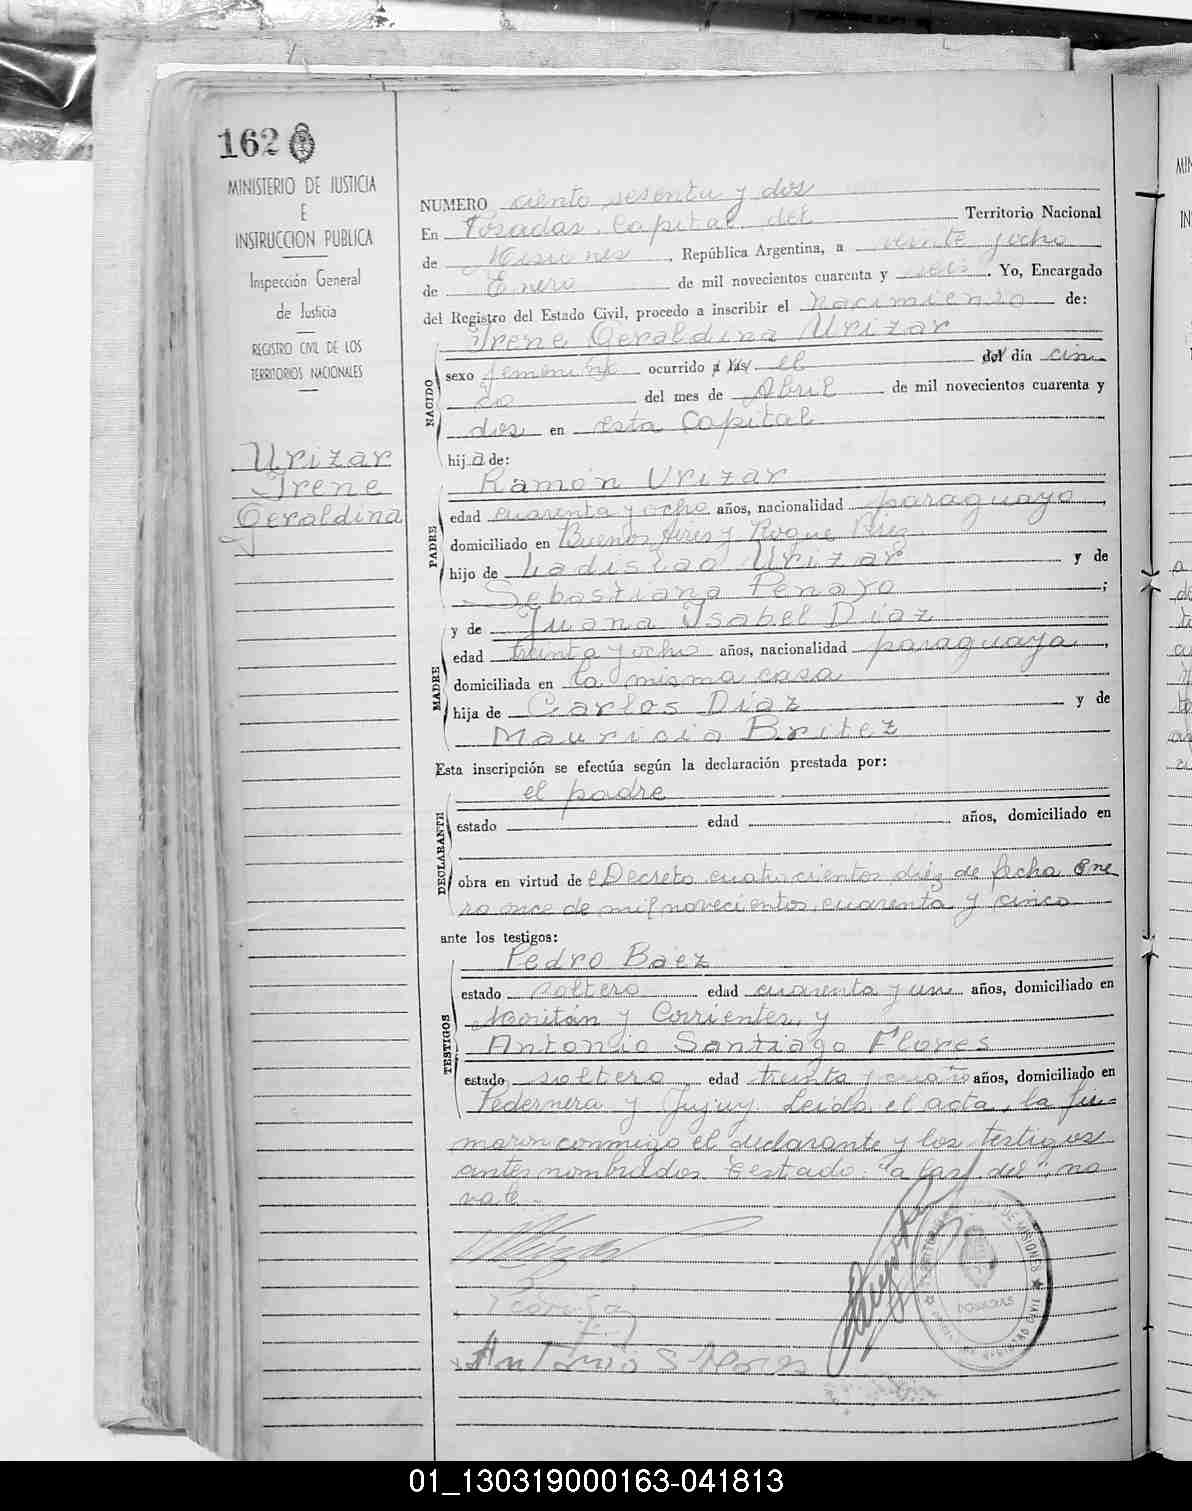 162
MINISTERIO DE JUSTICIA
E
INSTRUCCION PUBLICA
Inspección General
de Justicia
REGISTRO CIVIL DE LOS
TERRITORIOS NACIONALES
Urizar
Irene
Geraldina
NUMERO ciento sesenta y dos
En Posadas, Capital del Territorio Nacional
de Misiones, República Argentina, a veinte yocho
de Enero de mil novecientos cuarenta y seis. Yo, Encargado
del Registro del Estado Civil, procedo a inscribir el nacimiento de:
NACIDO
Irene Geraldina Urizar
sexo femenino ocurrido a las el del día cin
co del mes de Abril de mil novecientos cuarenta y
dos en esta Capital
hija de:
PADRE
Ramón Urizar
edad cuarenta y ocho años, nacionalidad paraguayo,
domiciliado en Buenos Aires y Roque Perez
hijo de Ladislao Urizar y de
Sebastiana Penayo;
y de Juana Isabel Diaz
MADRE
edad treinta y ocho años, nacionalidad paraguaya,
domiciliada en la misma casa
hija de Carlos Diaz y de
Mauricia Britez
Esta inscripción se efectúa según la declaración prestada por:
DECLARANTE
el padre
estado edad años, domiciliado en
obra en virtud de eDecreto cuatrocientos diez de fecha ene
ro once de mil novecientos cuarenta y cinco
ante los testigos:
TESTIGOS
Pedro Baez
estado soltero edad cuarenta y un años, domiciliado en
y Corrientes, y
Antonio Santiago Flores
estado soltero edad treinta y cuatro años, domiciliado en
Pedernera y Jujuy. Leida el acta, la fir=
maron conmigo el declarante y los testigos
antes nombrados. Testado: "a las, del", no
vale.
Antonio S Flores
DE MISIONES
POSADAS
01_130319000163-041813